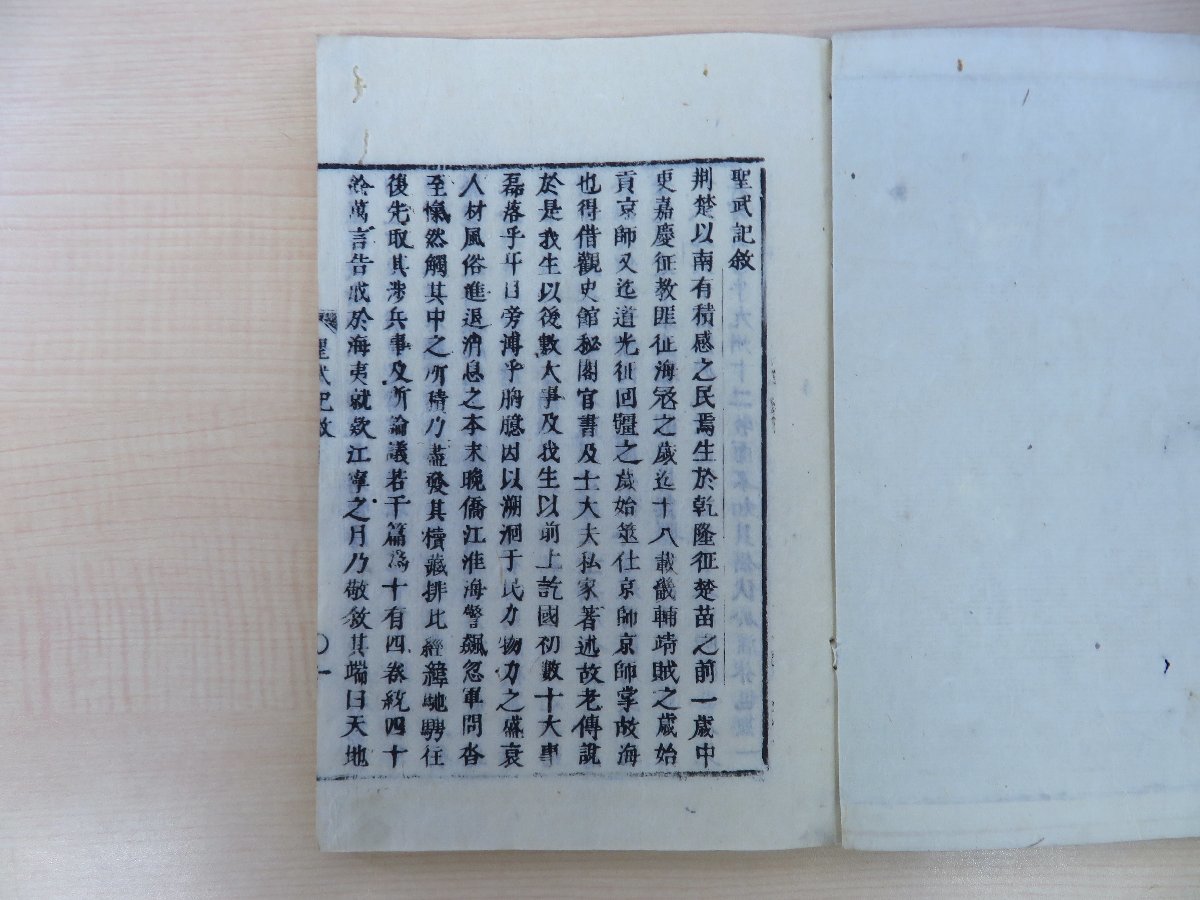 聖武記敘
荆楚以南有積感之民焉生於乾隆征楚苗之前一歲中
更嘉慶征教匪征海寇之歲迄十八載畿輔靖賊之歲始
貢京師又迄道光征回疆之歲始筮仕京師京師掌故海
也得借觀史館秘閣官書及士大夫私家著述故老傳說
於是我生以後數大事及我生以前上訖國初數十大事
磊落乎平日旁溥乎胸臆因以溯洄于民力物力之盛衰
人材風俗進退消息之本末晚僑江淮海警飆忽軍問沓
至愾然觸其中之所積乃盡發其櫝藏排比經緯馳騁往
後先取其涉兵事及所論議若干篇爲十有四卷統四十
餘萬言告成於海夷就款江寧之月乃敬敘其端曰天地
聖武記敘
一